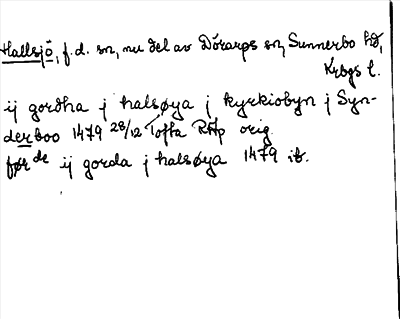 Hallsjö, f.d. sn, nu del av Dörarps sn, Sunnerbo hd,
Krbgs l.
ij gordha j halsøya j kyrkiobyn j Syn-
derboo 1479 28/12 Tofta RAp orig.
før de ij gorda j halsøya 1479 ib.